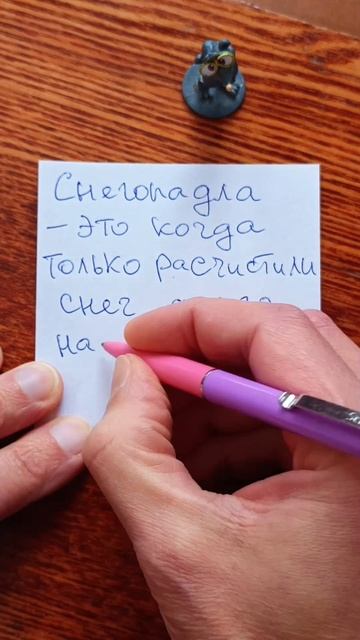 Снегопадла
- это когда
только расчистили
снег
на